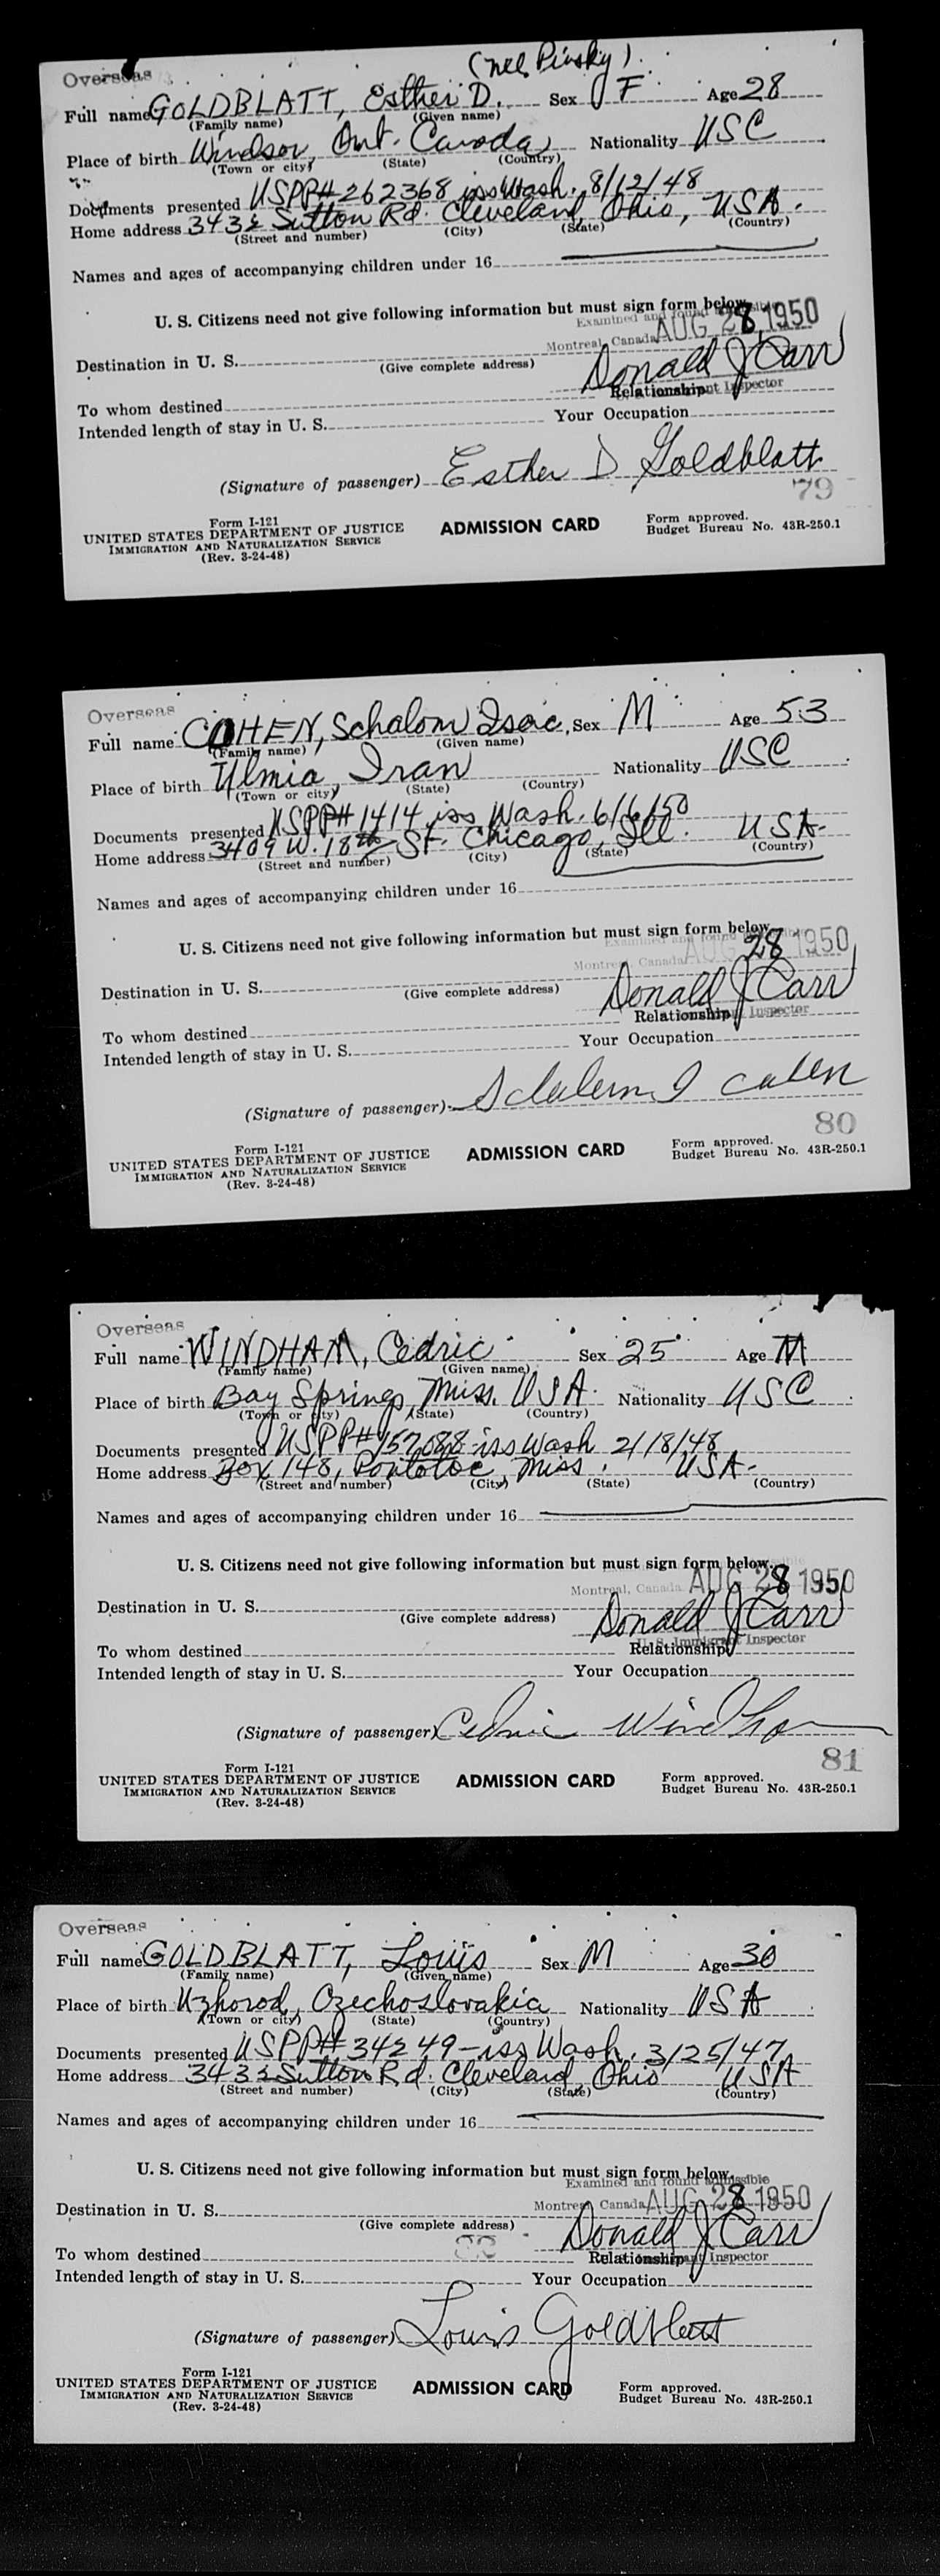 (nee Pinsky)
Overseas
Full name GOLDBLATT, Esther D. Sex F Age 28
(Family name) (Given name)
Place of birth Windsor, Ont. Canada Nationality USC
(Town or city) (State) (Country)
Documents presented USPP# 262368 iss Wash. 8/12/48
Home address 3432 Sutton Rd. Cleveland, Ohio, USA.
(Street and number) (City) (State) (Country)
Names and ages of accompanying children under 16
U. S. Citizens need not give following information but must sign form below.
Examined and found admissible
Montreal, Canada AUG 28 1950
Destination in U. S.
(Give complete address)
Donald J Carr
To whom destined Relationship Inspector
Intended length of stay in U. S. Your Occupation
(Signature of passenger) Esther D Goldblatt
79
Form I-121
UNITED STATES DEPARTMENT OF JUSTICE
IMMIGRATION AND NATURALIZATION SERVICE
(Rev. 3-24-48)
ADMISSION CARD
Form approved.
Budget Bureau No. 43R-250.1
Overseas
Full name COHEN, Schalom Isac, Sex M Age 53
(Family name) (Given name)
Place of birth Ulmia, Iran Nationality USC
(Town or city) (State) (Country)
Documents presented USPP# 1414 iss Wash. 6/6/50
Home address 3409 W. 18th St. Chicago, Ill. USA.
(Street and number) (City) (State) (Country)
Names and ages of accompanying children under 16
U. S. Citizens need not give following information but must sign form below.
Examined and found admissible
Montreal, Canada AUG 28 1950
Destination in U. S.
(Give complete address)
Donald J Carr
To whom destined Relationship Inspector
Intended length of stay in U. S. Your Occupation
(Signature of passenger) Schalom I Cohen
80
Form I-121
UNITED STATES DEPARTMENT OF JUSTICE
IMMIGRATION AND NATURALIZATION SERVICE
(Rev. 3-24-48)
ADMISSION CARD
Form approved.
Budget Bureau No. 43R-250.1
Overseas
Full name WINDHAM, Cedric Sex 25 Age M
(Family name) (Given name)
Place of birth Bay Springs, Miss. USA. Nationality USC
(Town or city) (State) (Country)
Documents presented USPP# 157088 iss Wash 2/18/48
Home address Box 148, Pontotoc, Miss. USA.
(Street and number) (City) (State) (Country)
Names and ages of accompanying children under 16
U. S. Citizens need not give following information but must sign form below.
Montreal, Canada AUG 28 1950
Destination in U. S.
(Give complete address)
Donald J Carr
U. S. Immigrant Inspector
To whom destined Relationship
Intended length of stay in U. S. Your Occupation
(Signature of passenger) Cedric Windham
81
Form I-121
UNITED STATES DEPARTMENT OF JUSTICE
IMMIGRATION AND NATURALIZATION SERVICE
(Rev. 3-24-48)
ADMISSION CARD
Form approved.
Budget Bureau No. 43R-250.1
Overseas
Full name GOLDBLATT, Louis Sex M Age 30
(Family name) (Given name)
Place of birth Uzhorod, Czechoslovakia Nationality USA
(Town or city) (State) (Country)
Documents presented USPP# 34249 - iss Wash. 3/25/47
Home address 3432 Sutton Rd. Cleveland, Ohio USA
(Street and number) (City) (State) (Country)
Names and ages of accompanying children under 16
U. S. Citizens need not give following information but must sign form below.
Examined and found admissible
Montreal, Canada AUG 28 1950
Destination in U. S.
(Give complete address)
Donald J Carr
To whom destined Relationship Inspector
Intended length of stay in U. S. Your Occupation
(Signature of passenger) Louis Goldblatt
Form I-121
UNITED STATES DEPARTMENT OF JUSTICE
IMMIGRATION AND NATURALIZATION SERVICE
(Rev. 3-24-48)
ADMISSION CARD
Form approved.
Budget Bureau No. 43R-250.1